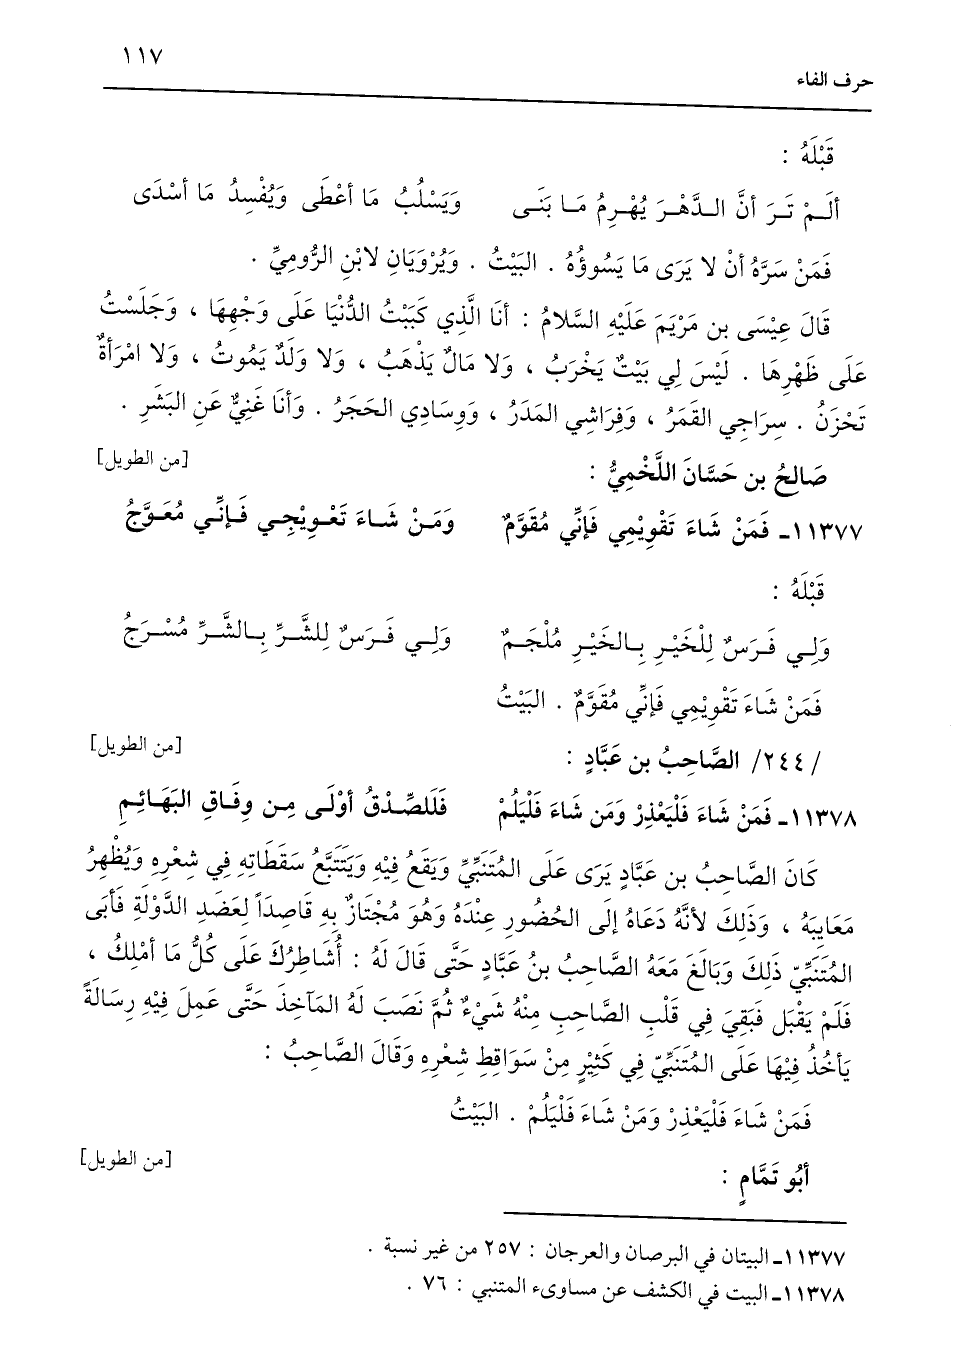 ١١٧
حرف الفاء
قَبْلَهُ :
أَلَمْ تَرَ أنَّ الدَّهْرَ يُهْرِمُ مَا بَنَى وَيَسْلُبُ مَا أعْطَى وَيُفْسِدُ مَا أسْدَى
فَمَنْ سَرَّهُ أنْ لا يَرَى مَا يَسُوؤُهُ . البَيْتُ . وَيُرْوَيَانِ لابْنِ الرُّومِيِّ .
قَالَ عِيْسَى بن مَرْيَمَ عَلَيْهِ السَّلامُ : أنَا الَّذِي كَبَبْتُ الدُّنْيَا عَلَى وَجْهِهَا ، وَجَلَسْتُ
عَلَى ظَهْرِهَا . لَيْسَ لِي بَيْتٌ يَخْرَبُ ، وَلا مَالٌ يَذْهَبُ ، وَلا وَلَدٌ يَمُوتُ ، وَلا امْرَأةٌ
تَحْزَنُ . سِرَاجِي القَمَرُ ، وَفِرَاشِي المَدَرُ ، وَوِسَادِي الحَجَرُ . وَأنَا غَنِيٌّ عَنِ البَشَرِ .
صَالِحُ بن حَسَّانَ اللَّخْمِيُّ : [من الطويل]
١١٣٧٧ـ فَمَنْ شَاءَ تَقْوِيْمِي فَإنِّي مُقَوَّمٌ وَمَنْ شَاءَ تَعْوِيْجِي فَإنِّي مُعَوَّجُ
قَبْلَهُ :
وَلِي فَرَسٌ لِلْخَيْرِ بِالخَيْرِ مُلْجَمٌ وَلِي فَرَسٌ لِلشَّرِّ بِالشَّرِّ مُسْرَجُ
فَمَنْ شَاءَ تَقْوِيْمِي فَإنِّي مُقَوَّمٌ . البَيْتُ
/٢٤٤/ الصَّاحِبُ بن عَبَّادٍ : [من الطويل]
١١٣٧٨ـ فَمَنْ شَاءَ فَلْيَعْذِرْ وَمَن شَاءَ فَلْيَلُمْ فَلَلصِّدْقُ أوْلَى مِن وِفَاقِ البَهَائِمِ
كَانَ الصَّاحِبُ بن عَبَّادٍ يَرَى عَلَى المُتَنَبِّيِّ وَيَقَعُ فِيْهِ وَيَتَتَبَّعُ سَقَطَاتِهِ فِي شِعْرِهِ وَيُظْهِرُ
مَعَايِبَهُ ، وَذَلِكَ لأنَّهُ دَعَاهُ إلَى الحُضُورِ عِنْدَهُ وَهُوَ مُجْتَازٌ بِهِ قَاصِدَاً لِعَضَدِ الدَّوْلَةِ فَأبَى
المُتَنَبِّيّ ذَلِكَ وَبَالَغَ مَعَهُ الصَّاحِبُ بنُ عَبَّادٍ حَتَّى قَالَ لَهُ : أُشَاطِرُكَ عَلَى كُلِّ مَا أمْلِكُ ،
فَلَمْ يَقْبَل فَبَقِيَ فِي قَلْبِ الصَّاحِبِ مِنْهُ شَيْءٌ ثُمَّ نَصَبَ لَهُ المَآخِذَ حَتَّى عَمِلَ فِيْهِ رِسَالَةً
يَأخُذُ فِيْهَا عَلَى المُتَنَبِّيّ فِي كَثِيْرٍ مِنْ سَوَاقِطِ شِعْرِهِ وَقَالَ الصَّاحِبُ :
فَمَنْ شَاءَ فَلْيَعْذِرْ وَمَنْ شَاءَ فَلْيَلُمْ . البَيْتُ
أبُو تَمَّامٍ : [من الطويل]
١١٣٧٧ـ البيتان في البرصان والعرجان : ٢٥٧ من غير نسبة .
١١٣٧٨ـ البيت في الكشف عن مساوىء المتنبي : ٧٦ .